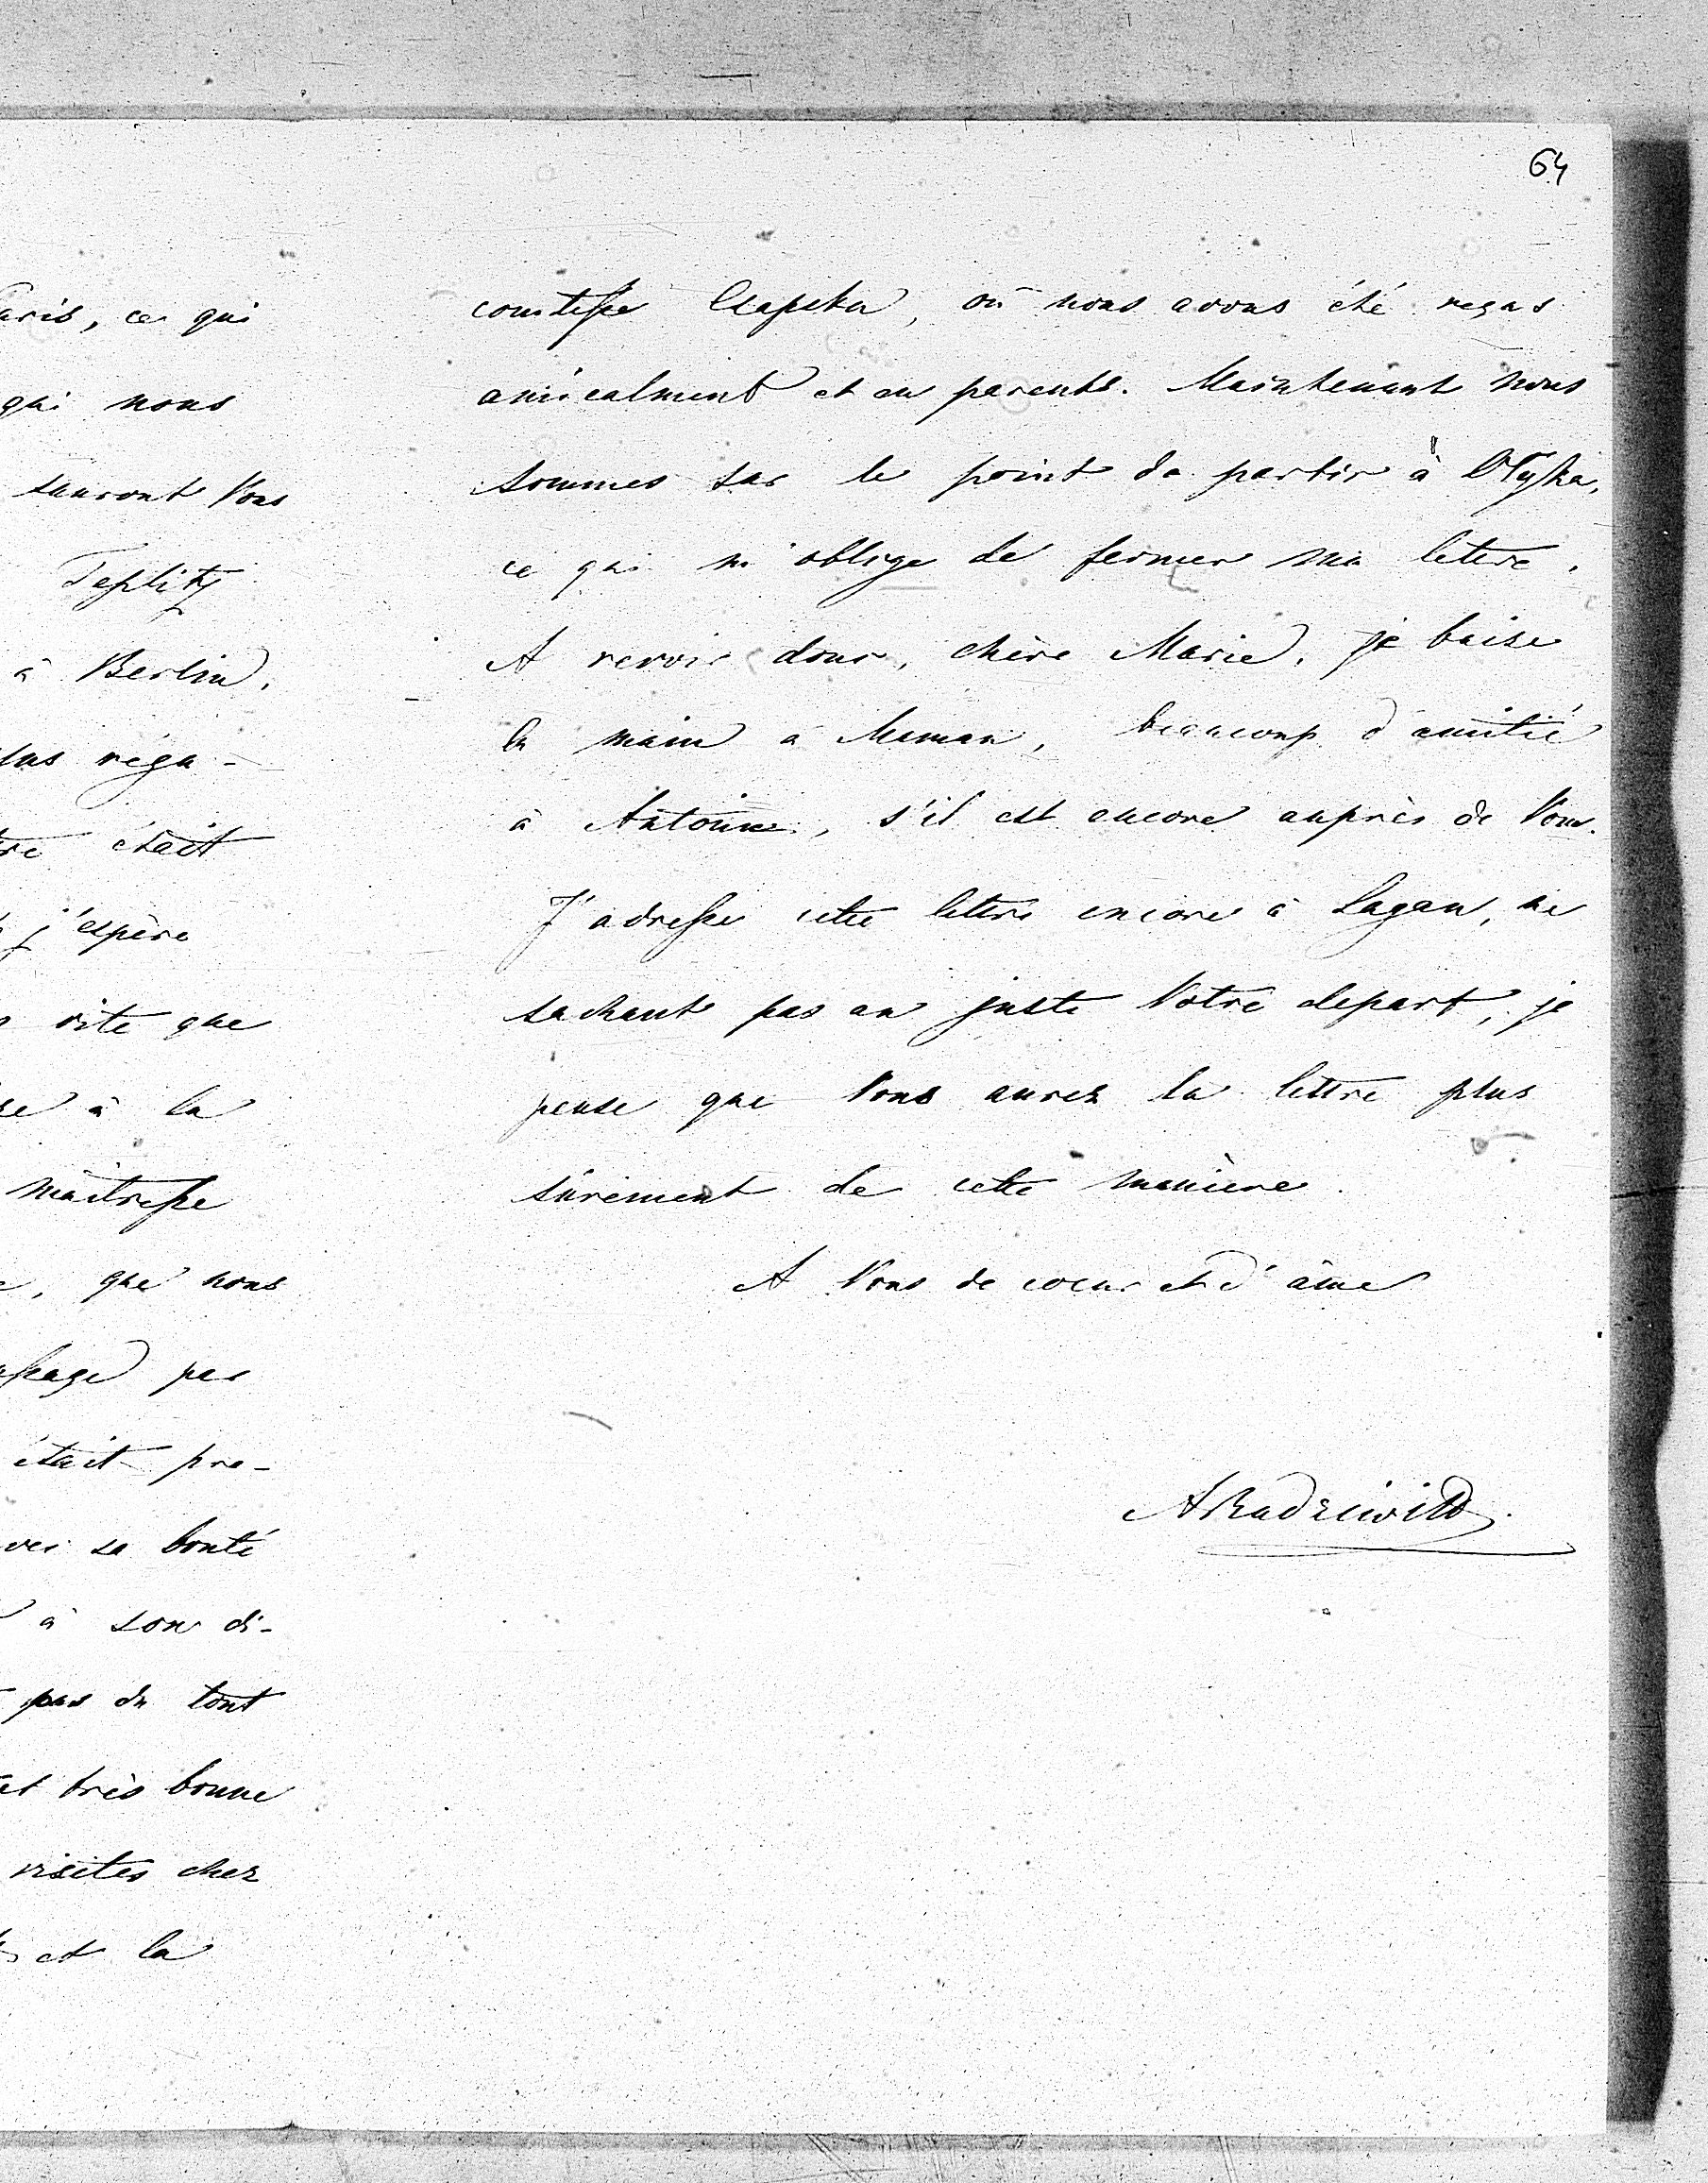 64
aris, ce qui
qui nous
sauront Vous
Teplitz
à Berlin,
lus régu-
tre était
j'espère
vite que
se à la
maîtresse
, que nous
par
était pre-
sa bonté
à son di-
pas du tout
et très bonne
visites chez
et la
comtesse Czapska, où nous avons été reçus
amicalment et en parents. Maintenant nous
sommes sur le point de partir à Ołyka,
ce qui m'oblige de fermer ma lettre.
A revoir donc, chère Marie, je baise
la main à Maman, beaucoup d'amitié
à Antoine, s'il est encore auprès de Vous.
J'adresse cette lettre encore à Sagan, ne
sachant pas au juste Votre depart, je
pense que Vous aurez la lettre plus
sûrement de cette manière.
A Vous de coeur et d'âme
ARadziwiłł